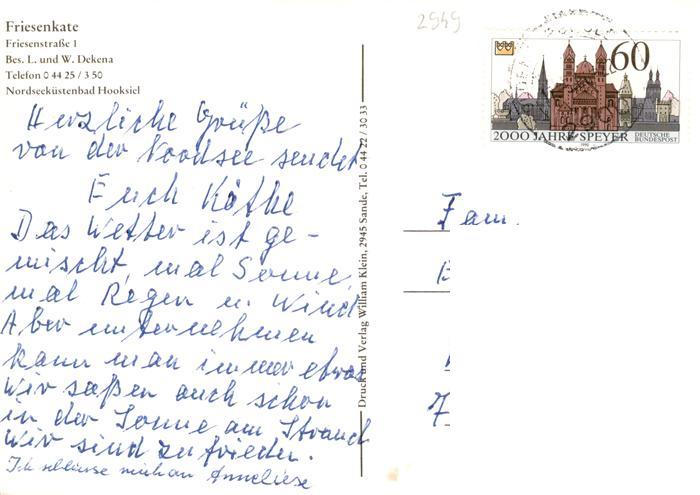 Friesenkate
Friesenstraße 1
Bes. L. und W. Dekena
Telefon 0 44 25 / 3 50
Nordseeküstenbad Hooksiel
2949
60
2000 JAHRE SPEYER
DEUTSCHE BUNDESPOST
1990
Herzliche Grüße
von der Noodsee sendet
Euch Käthe
Das Wetter ist ge-
mischt, mal Sonne,
mal Regen u. Wind
Aber unternehmen
kann man immer etwas
Wir saßen auch schon
in der Sonne am Strand
Wir sind zufrieden.
Ich schliesse mich an Anneliese
Druck und Verlag William Klein, 2945 Sande, Tel. 0 44 22 / 30 33
Fam.